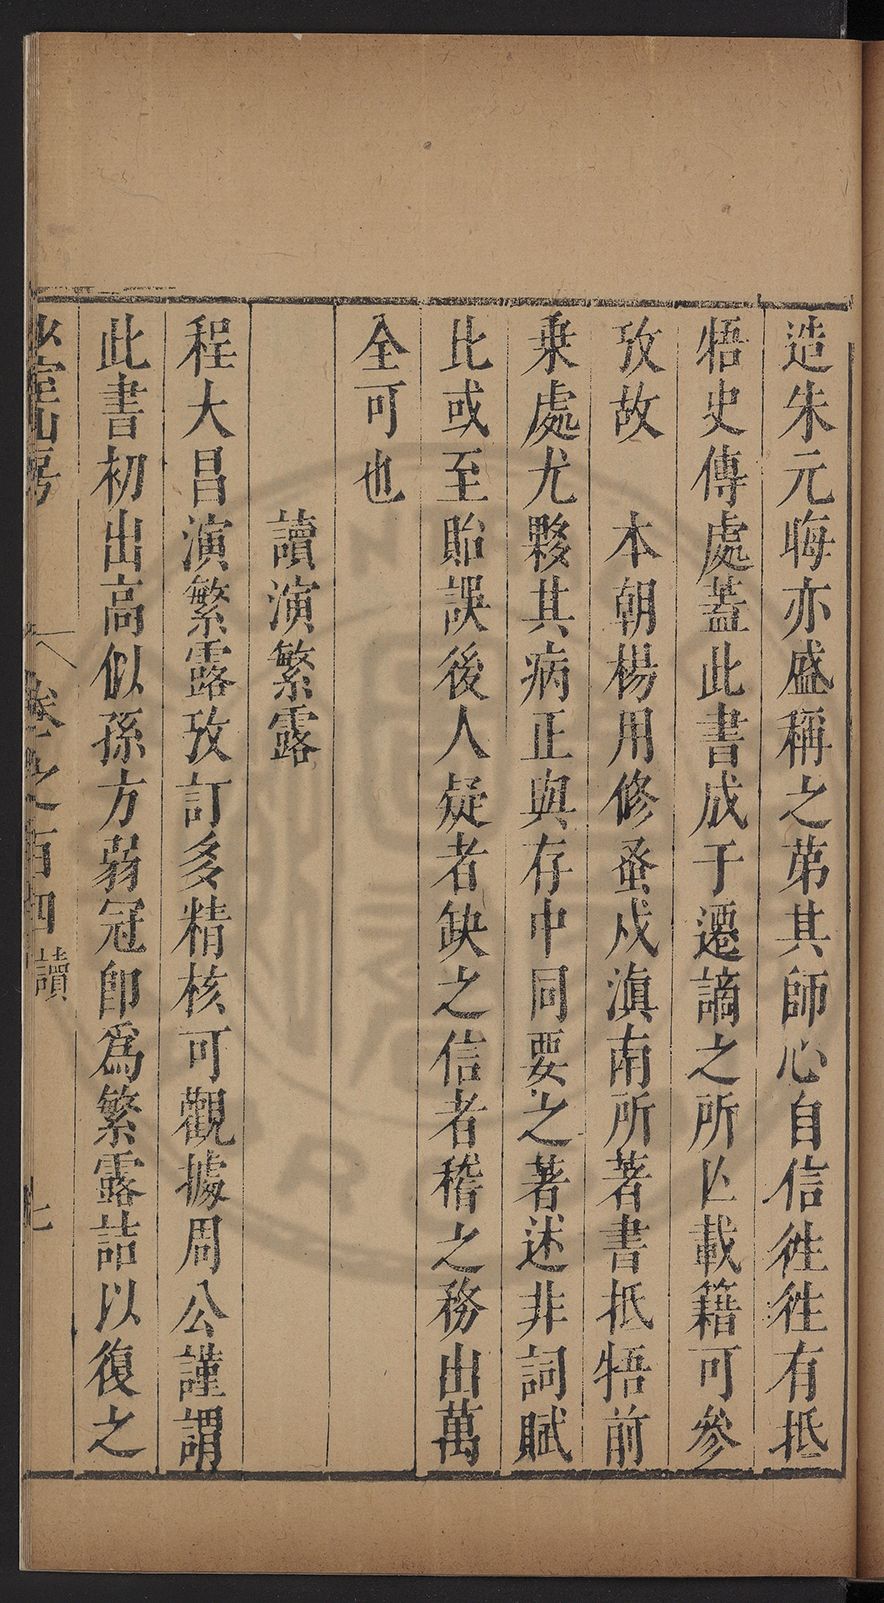 造朱元晦亦盛稱之苐其師心自信徃徃有抵
牾史傳處蓋此書成于遷謫之所亾載籍可參
攷故　本朝楊用修蚤戍滇南所著書抵牾前
乗處尤夥其病正與存中同要之著述非詞賦
比或至貽誤後人疑者缺之信者稽之務出萬
全可也
讀演繁露
程大昌演繁露攷訂多精核可觀據周公謹謂
此書初出高似孫方弱冠卽爲繁露詰以復之
少室山房　卷之百四　讀　七